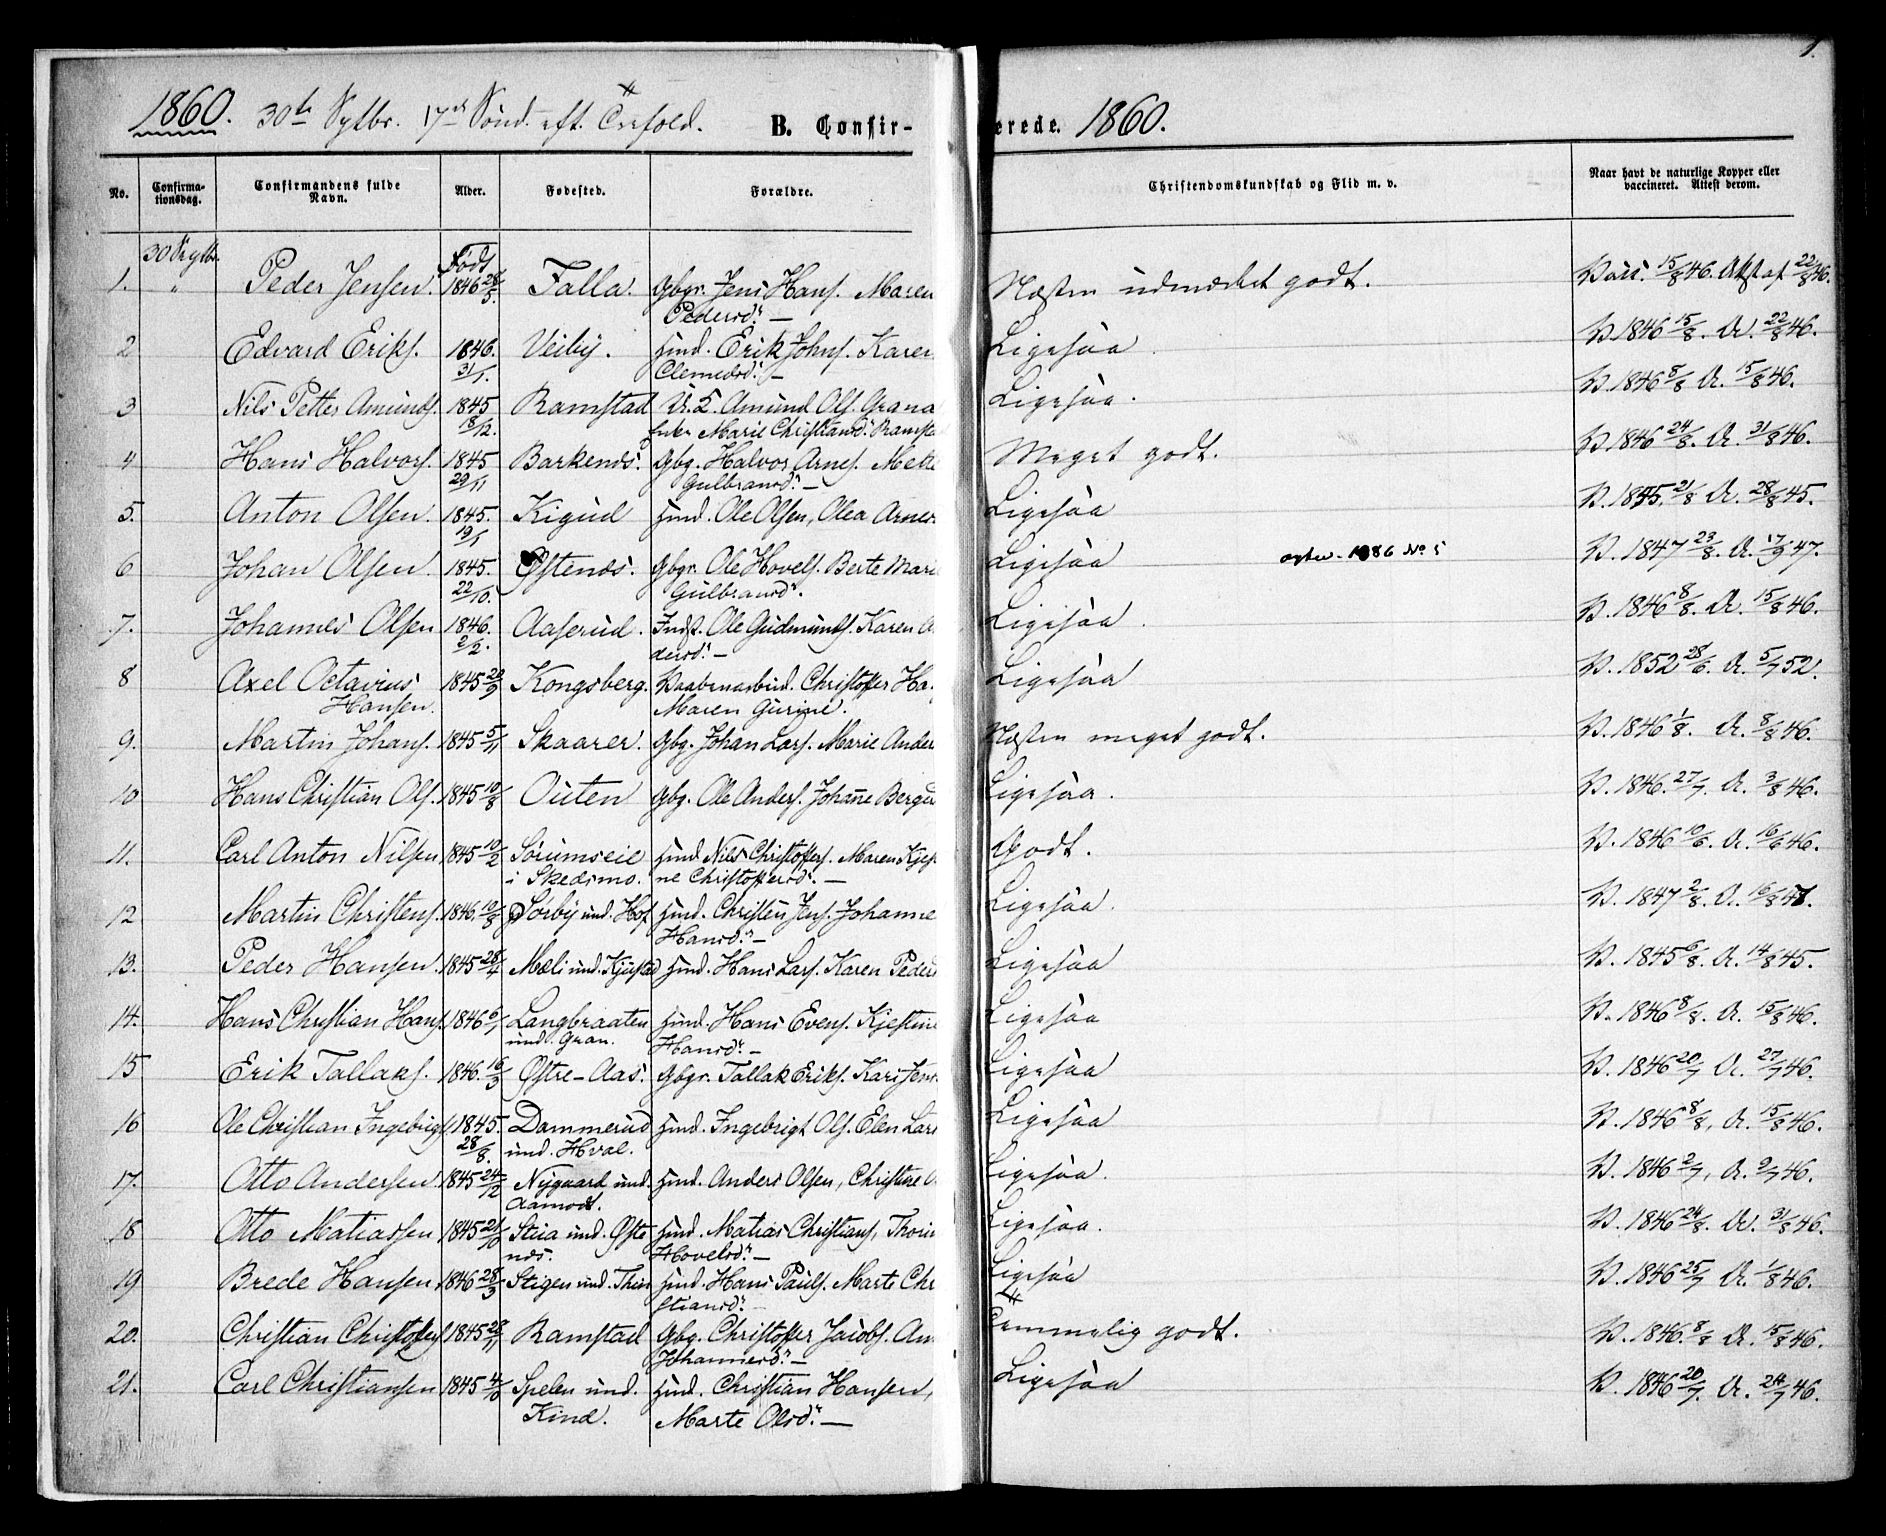 1860. 30te Septbr. 17de Sønd. eft. Trefold. B. Confir-
No.
Confirma-
tionsdag.
Confirmandens fulde
Navn.
Alder.
Fødested.
Forældre.
30 Septbr. Født
1. " Peder Jensen. 1846 28/5 Falla. Gbgr. Jens Hans. Maren
Pedersd. —
2 Edvard Eriks. 1846. 31/1. Veiby. Huusd. Erik Johns. Karen
Clemedsd. —
3 Nils Petter Amunds. 1845 18/12. Ramstad U. E. Amund Ols. Grana
Enke Marie Christiansd. Ramstad
4 Hans Halvors. 1845 29/11 Barkenæs. Gbg. Halvor Arnes. Mette
Gulbransd. —
5. Anton Olsen. 1845. 19/1 Kigud Huusd. Ole Olsen, Olea Arnes
6 Johan Olsen. 1845. 22/10. Østenæs. Gbgr. Ole Hovels. Berte Marie
Gulbransd.
7. Johannes Olsen 1846. 2/2. Aaserud. Indst. Ole Gudmunds. Karen A
dersd. —
8 Axel Octavius 1845 20/9 Kongsberg. Vaabenarbeid. Christoffer Ha
Hansen. Maren Gurine.
9. Martin Johans. 1845 5/11 Skaarer. Gbg. Johan Lars. Marie Ander
10 Hans Christian Ols. 1845 10/8 Outen Gbg. Ole Anders. Johanne Berger
11. Carl Anton Nilsen 1845 10/2 Sørumseie Huusd. Nils Christoffers. Maren Kjes
i Skedsmo. ne Christoffersd. —
12 Martin Christens. 1846. 10/8 Sørby und. Hof Huusd. Christen Jens. Johanne
Hansd. —
13. Peder Hansen. 1845 28/4 Mæli und. Kjustad Huusd. Hans Lars. Karen Peders
14. Hans Christian Hans. 1846 6/1 Langbraaten Huusd. Hans Evens. Kjestine
und. Gran. Hansd. —
15 Erik Tallaks. 1846. 16/3 Østre-Aas. Gbgr. Tallak Eriks. Kari Jens
16 Ole Christian Ingebrigts. 1845. 28/8. Dammerud Huusd. Ingebrigt Ols. Elen Lars
und. Hval.
17. Otto Andersen. 1845 24/12 Nygaard und. Huusd. Anders Olsen, Christine
Aamodt.
18 Otto Matiassen 1845 21/10 Stua und. Øste Huusd. Matias Christians. Thorin
næs. Hovelsd. —
19 Brede Hansen. 1846 28/3 Stigen und. Thien Huusd. Hans Pauls. Marte Chr
stiansd. —
20. Christian Christoffers 1845 28/11 Ramstad Gbg. Christoffer Jacobs. An
Johannesd. —
21. Carl Christiansen 1845 Spelen und. Huusd. Christian Hansen,
Kind. Marte Olsd. —
1.
erede. 1860.
Christendomskundskab og Flid m. v.
Naar havt de naturlige Kopper eller
vaccineret. Attest derom.
Næsten udmærket godt. Vacc. 15/8 46. Attst af 22/8 46.
Ligesaa. V. 1846 15/8. A. 22/8 46.
Ligesaa. V. 1846 8/8 A. 15/8 46.
Meget godt. V. 1846 24/8. A. 31/8 46.
Ligesaa V. 1845. 21/8 A. 28/8 45.
Ligesaa 1886 No 5 V. 1847 23/8. A. 17/9 47.
Ligesaa. V. 1846 8/8. A. 15/8 46.
Ligesaa V. 1852 28/6. A. 5/7 52.
Næsten meget godt. V. 1846 1/8. A. 8/8 46.
Ligesaa. V. 1846. 27/7. A. 3/8 46.
Godt. V. 1846 10/6. A. 16/6 46.
Ligesaa. V. 1847 2/8. A. 16/8 47.
Ligesaa V. 1845 6/8. A. 14/8 45.
Ligesaa V. 1846 8/8. A. 15/8 46.
Ligesaa V. 1846 20/7 A. 27/7 46.
Ligesaa V. 1846 8/8, A. 15/8 46.
Ligesaa. V. 1846 2/7, A. 9/7 46.
Ligesaa. V. 1846 24/8. A. 31/8 46.
Ligesaa V. 1846 25/7 A. 1/8 46.
Temmelig godt. V. 1846. 8/8 A. 15/8 46.
Ligesaa V. 1846 20/7. A. 24/7 46.